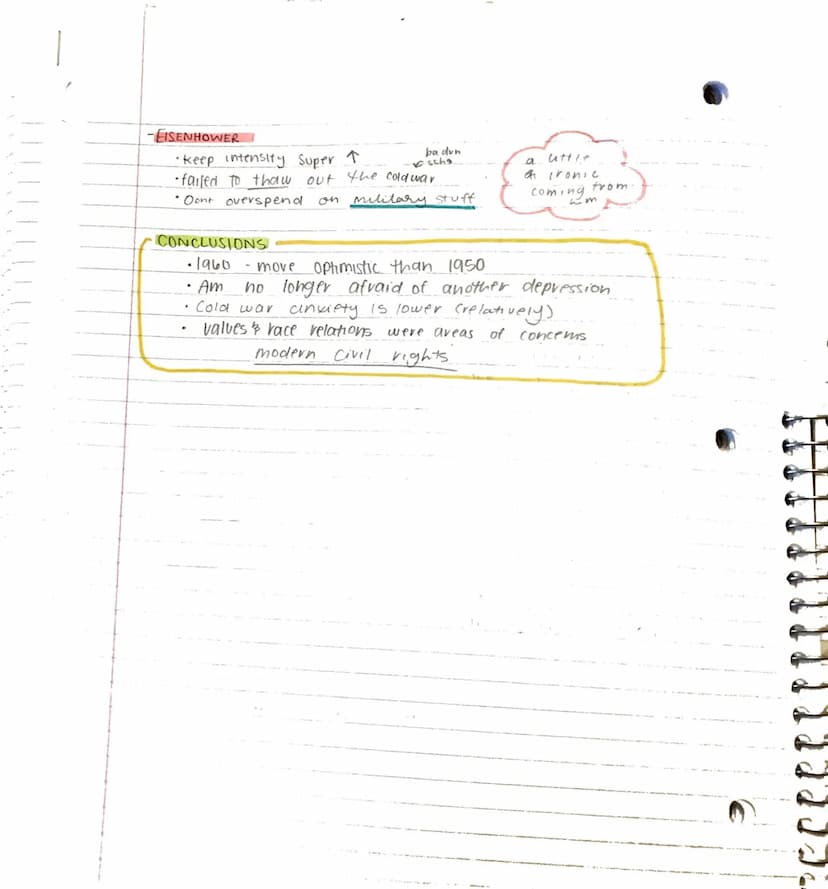 - EISENHOWER
• keep intensity super ↑
• failed to thaw out the coldwar
• Dont overspend on military stuff
a little
ironic
coming from
CONCLUSIONS
• 1960 - more optimistic than 1950
• Am no longer afraid of another depression
• Cold war anxiety is lower (relatively)
• values & race relations were areas of concerns
modern civil rights